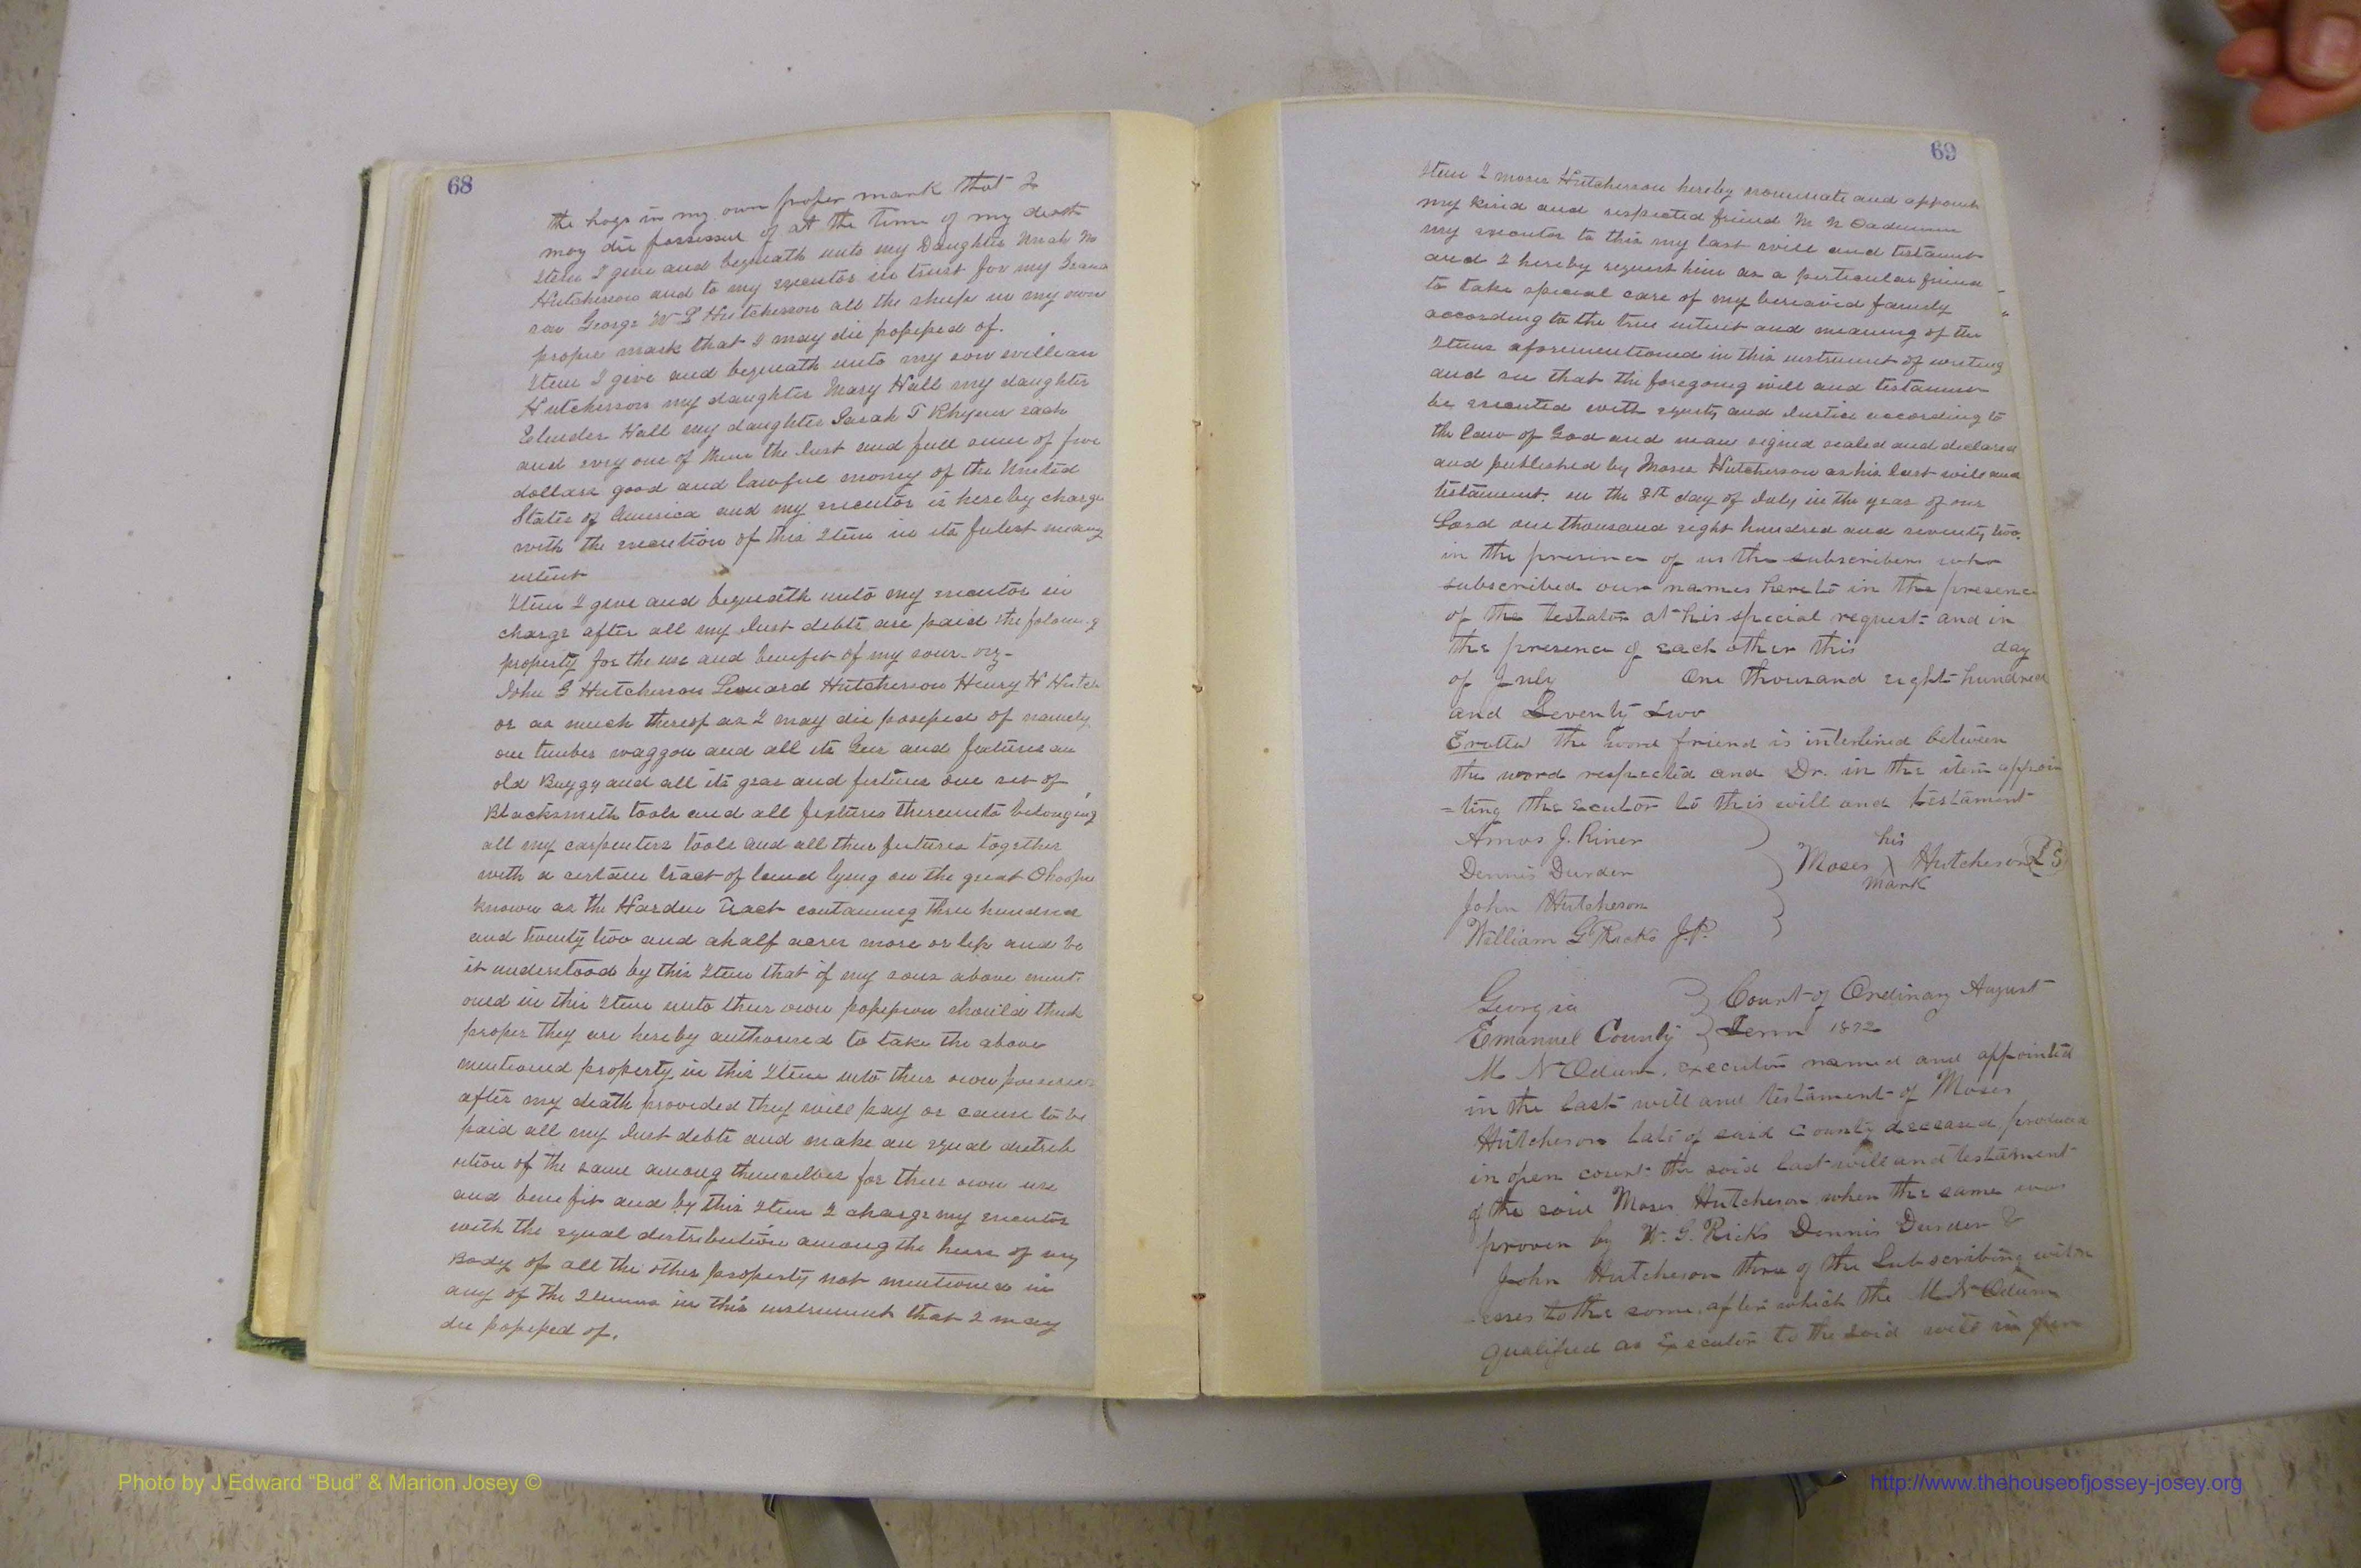 68
the hogs in my own proper mark that I
may die possessed of at the time of my death
Item I give and bequeath unto my Daughter
Hutcherson and to my executor in trust for my Grand
son George W L Hutcherson all the sheep in my own
proper mark that I may die possessed of.
Item I give and bequeath unto my son William
Hutcherson my daughter Mary Hall my daughter
Elender Hall my daughter Sarah T each
and evry one of them the Just and full sum of five
dollars good and lawful money of the United
States of America and my executor is hereby charge
with the execution of this Item in its fulest meang
intent
Item I give and bequeath unto my executor in
charge after all my Just debts are paid the folowing
property for the use and benefit of my sons viz
John G Hutcherson Leonard Hutcherson Henry H Hutch
or as much thereof as I may die possessed of namely
one timber waggon and all its Gear and fixtures an
old Buggy and all its gear and fixtures one set of
Blacksmith tools and all fixtures thereunto belonging
all my carpenters tools and all their fixtures together
with a certain tract of land lying on the great Ohoopee
known as the Harden Tract containing three hundred
and twenty two and a half acres more or less and be
it understood by this Item that if my sons above ment
oned in this Item unto their own possession should think
proper they are hereby authorised to take the above
mentioned property in this Item into their own possession
after my death provided they will pay or cause to be
paid all my Just debts and make an equal distrib
ution of the same among themselves for their own use
and benefit and by this Item I charge my executor
with the equal distribution among the heirs of my
Body of all the other property not mentioned in
any of the Items in this instrument that I may
die possessed of.
69
Item I Moses Hutcherson hereby nominate and appoint
my kind and respected friend M N
my executor to this my last will and testament
and I hereby request him as a particular friend
to take special care of my bereaved family
according to the true intent and meaning of the
Items aforementioned in this instrument of writing
and see that the foregoing will and testament
be executed with equity and Justice according to
the law of God and man signed sealed and declared
and published by Moses Hutcherson as his last will and
testament. on the 8th day of July in the year of our
Lord one thousand eight hundred and seventy two.
in the presence of us the subscribers who
subscribed our names hereto in the presence
of the testator at his special request and in
the presence of each other this day
of July One thousand eight hundred
and Seventy Two
Eratta the word friend is interlined between
the word respected and Dr. in the item appoin
=ting the Executor to this will and testament
Amos J. Riner
Dennis Durden
John Hutcheson
William G Ricks J.P.
his
Moses X Hutcheson (L S)
mark
Georgia } Court of Ordinary August
Emanuel County } Term 1872
M N Odum, executor named and appointed
in the last will and testament of Moses
Hutcheson late of said County deceased produced
in open court the said last will and testament
of the said Moses Hutcheson when the same was
proven by W. G. Ricks Dennis Durden &
John Hutcheson three of the Subscribing witn
esses to the same, after which the M N Odum
qualified as Executor to the said will in open
Photo by J Edward “Bud” & Marion Josey ©
http://www.thehouseofjossey-josey.org